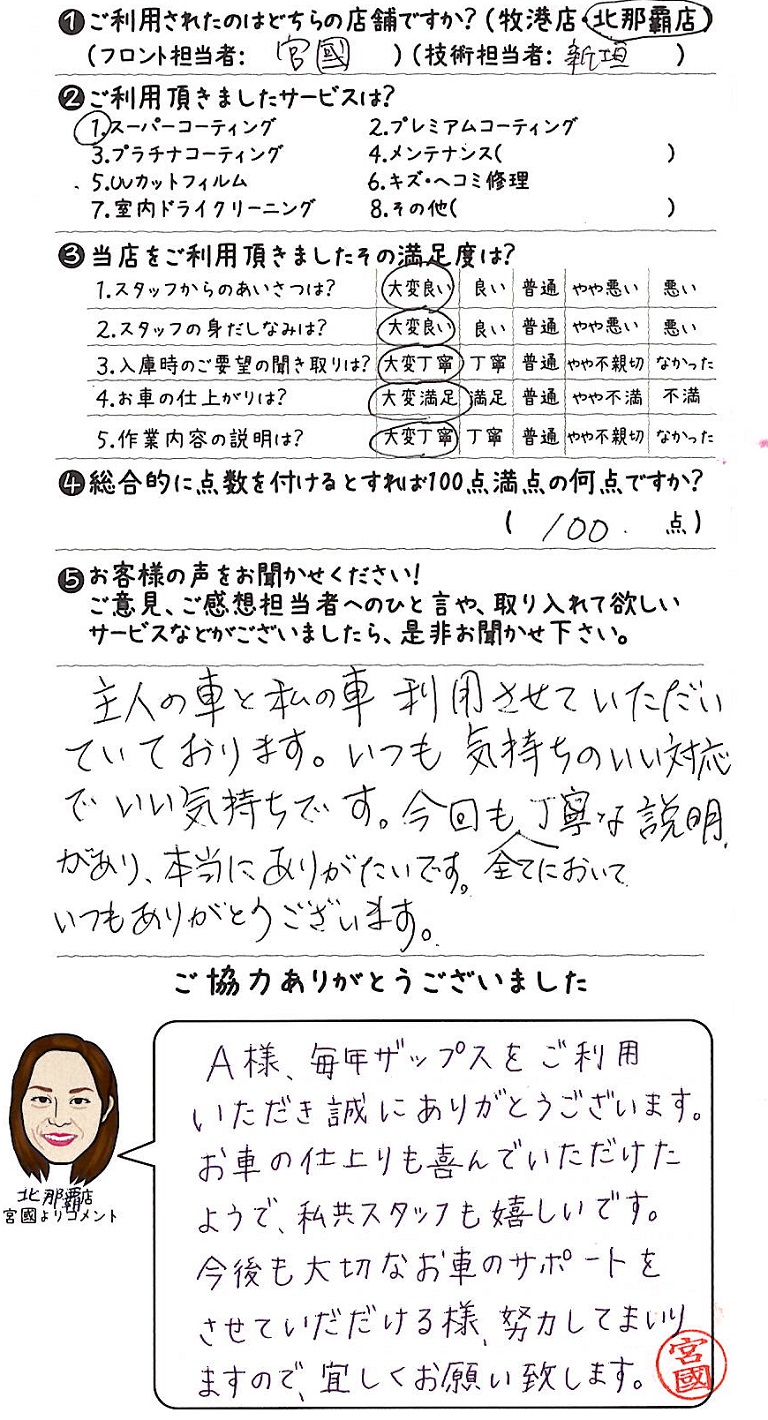 ❶ご利用されたのはどちらの店舗ですか?(牧港店・北那覇店)
(フロント担当者: 宮國 )(技術担当者: 新垣 )
❷ご利用頂きましたサービスは?
1.スーパーコーティング 2.プレミアムコーティング
3.プラチナコーティング 4.メンテナンス( )
5.UVカットフィルム 6.キズ・ヘコミ修理
7.室内ドライクリーニング 8.その他( )
❸当店をご利用頂きましたその満足度は?
1.スタッフからのあいさつは? 大変良い 良い 普通 やや悪い 悪い
2.スタッフの身だしなみは? 大変良い 良い 普通 やや悪い 悪い
3.入庫時のご要望の聞き取りは? 大変丁寧 丁寧 普通 やや不親切 なかった
4.お車の仕上がりは? 大変満足 満足 普通 やや不満 不満
5.作業内容の説明は? 大変丁寧 丁寧 普通 やや不親切 なかった
❹総合的に点数を付けるとすれば100点満点の何点ですか?
( 100. 点)
❺お客様の声をお聞かせください!
ご意見、ご感想担当者へのひと言や、取り入れて欲しい
サービスなどがございましたら、是非お聞かせ下さい。
主人の車と私の車 利用させていただい
ております。いつも 気持ちのいい対応
で いい気持ちです。今回も丁寧な説明
があり、本当にありがたいです。全てにおいて
いつもありがとうございます。
ご協力ありがとうございました
A様、毎年ザップスをご利用
いただき誠にありがとうございます。
お車の仕上りも喜んでいただけた
ようで、私共スタッフも嬉しいです。
今後も大切なお車のサポートを
させていだだける様、努力してまいり
ますので、宜しくお願い致します。
宮國
北那覇店
宮國よりコメント